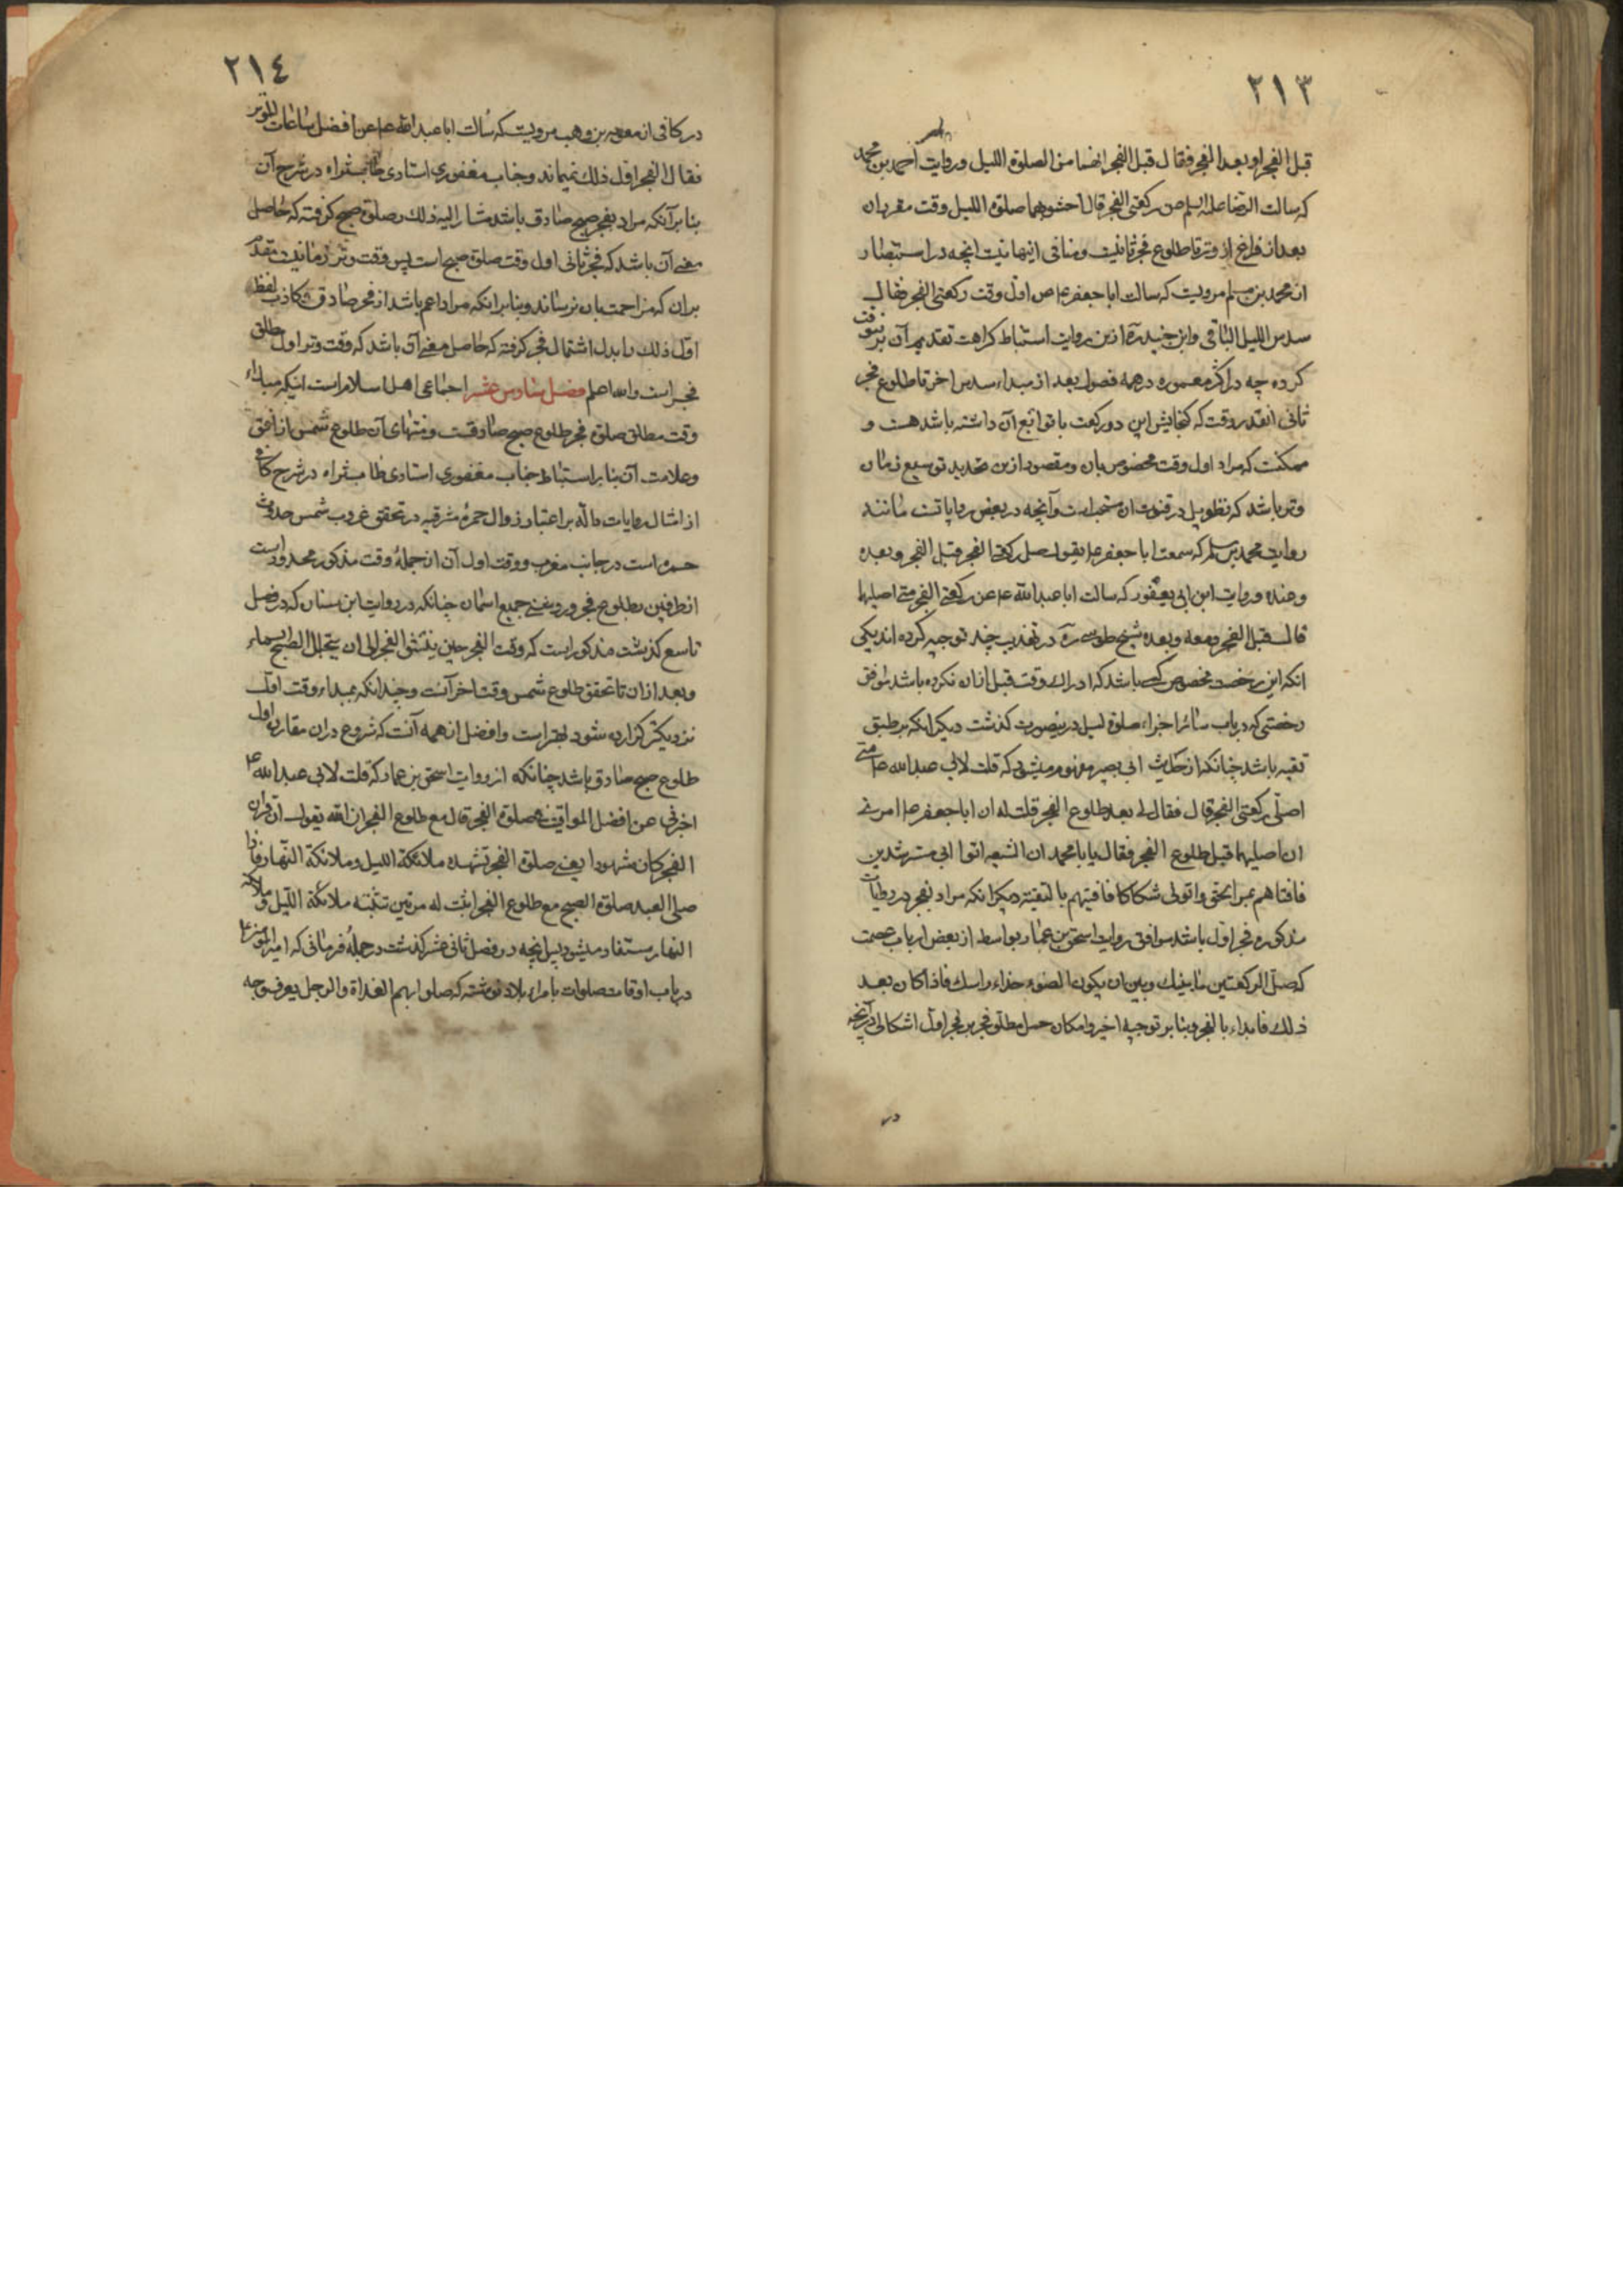 ٢١٣
قبل الفجر او بعد الفجر فقال قبل الفجر انهما من الصلوة الليل وروایت احمد بن محمد
که سالت الرضا علیه السلم عن رکعتی الفجر قال احشوبهما صلوة اللیل وقت مقربان
بعد از فراغ از وتر تا طلوع فجر ثانیست ومنافی اینها نیست انچه در استبصار
از محمد بن مسلم مرویست که سالت ابا جعفر ع عن اول وقت رکعتی الفجر فقال
سدس اللیل الباقی وابن جنید ره ازین روایت استنباط کراهت تقدیم آن برین وقت
کرده چه در اکثر معموره در همه فصول بعد از مبداء سدس اخر تا طلوع فجر
ثانی انقدر وقت که کنجایش این دو رکعت با توابع آن داشته باشد هست و
ممکنست که مراد اول وقت مخصوص بان ومقصود ازین تحدید توسیع زمان
وتر باشد که تطویل در قنوت ان مستحب است وآنچه در بعض روایاتست مانند
روایت محمد بن مسلم که سمعت ابا جعفر ع یقول صل رکعتی الفجر قبل الفجر وبعده
وعنده وروایت ابن ابی یعفور که سالت ابا عبدالله ع عن رکعتی الفجر متی اصلیها
قال قبل الفجر ومعه وبعده شیخ طوسی ره در تهذیب چند توجیه کرده اند یکی
انکه این رخصت مخصوص کسی باشد که ادراک وقت قبل ازان نکرده باشد موافق
رخصتی که در باب سائر اجزاء صلوة لیل درینصورت کذشت دیکر انکه بر طبق
تقیه باشد چنانکه از حدیث ابی بصیر مفهوم میشود که قلت لابی عبدالله ع متی
اصلی رکعتی الفجر قال فقال لی بعد طلوع الفجر قلت له ان ابا جعفر ع امرنی
ان اصلیهما قبل طلوع الفجر فقال یا با محمد ان الشیعه اتوا ابی مسترشدین
فافتاهم بمر الحق واتونی شکاکا فافتیتهم بالتقیة دیکر انکه مراد بفجر در روایات
مذکوره فجر اول باشد موافق روایت اسحق بن عمار بواسطه از بعض ارباب عصمت
که صل الرکعتین ما بینک وبین ان یکون الضوء حذاء راسک فاذا کان بعد
ذلک فابداء بالفجر وبنابر توجیه اخیر وامکان حمل مطلق فجر بر فجر اول اشکالی در آنچه
در
٢١٤
در کافی از معویه بن وهب مرویست که سالت ابا عبدالله ع عن افضل ساعات الوتر
فقال الفجر اول ذلک نمیماند وجناب مغفوری استادی طاب ثراه در شرح آن
بنابر آنکه مراد بفجر صبح صادق باشد مشار الیه ذلک را صلوة صبح کرفته که حاصل
معنی آن باشد که فجر ثانی اول وقت صلوة صبح است پس وقت وتر زمانیست مقدم
بران که مزاحمت بان نرساند وبنابر اینکه مراد اعم باشد از فجر صادق وکاذب لفظ
اول ذلک را بدل اشتمال فجر کرفته که حاصل معنی آن باشد که وقت وتر اول مطلق
فجر است والله اعلم فصل سادس عشر اجماعی اهل اسلام است اینکه مبداء
وقت مطلق صلوة فجر طلوع صبح صادقست ومنتهای آن طلوع شمس از افق
وعلامت آن بنابر استنباط جناب مغفوری استادی طاب ثراه در شرح کافی
از امثال روایات داله بر اعتبار زوال حمرۀ مشرقیه در تحقق غروب شمس حدوث
حمره است در جانب مغرب ووقت اول آن از جملۀ وقت مذکور محدود است
از طرفین بطلوع فجر وروشنی جمیع اسمان چنانکه در روایت ابن سنان که در فصل
تاسع کذشت مذکور است که وقت الفجر حین ینشق الفجر الی ان یتجلل الصبح السماء
وبعد ازان تا تحقق طلوع شمس وقت اخر آنست وچندانکه بمبداء وقت اول
نزدیکتر کزارده شود بهتر است وافضل از همه آنست که شروع دران مقارن اول
طلوع صبح صادق باشد چنانکه از روایت اسحق بن عمار که قلت لابی عبدالله ع
اخبرنی عن افضل المواقیت فی صلوة الفجر قال مع طلوع الفجر ان الله یقول ان قران
الفجر کان مشهودا یعنی صلوة الفجر تشهده ملائکة اللیل وملائکة النهار فاذا
صلی العبد صلوة الصبح مع طلوع الفجر اثبت له مرتین تثبته ملائکة اللیل وملائکة
النهار مستفاد میشود پس انچه در فصل ثانی عشر کذشت در جملۀ فرمانی که امیر المؤمنین ع
در باب اوقات صلوات بامراء بلاد نوشته که صلوا بهم الغداة والرجل یعرف وجه